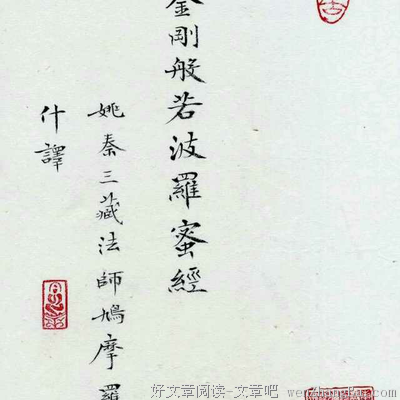 金剛般若波羅蜜經
姚秦三藏法師鳩摩羅
什譯
好文章阅读-文章吧